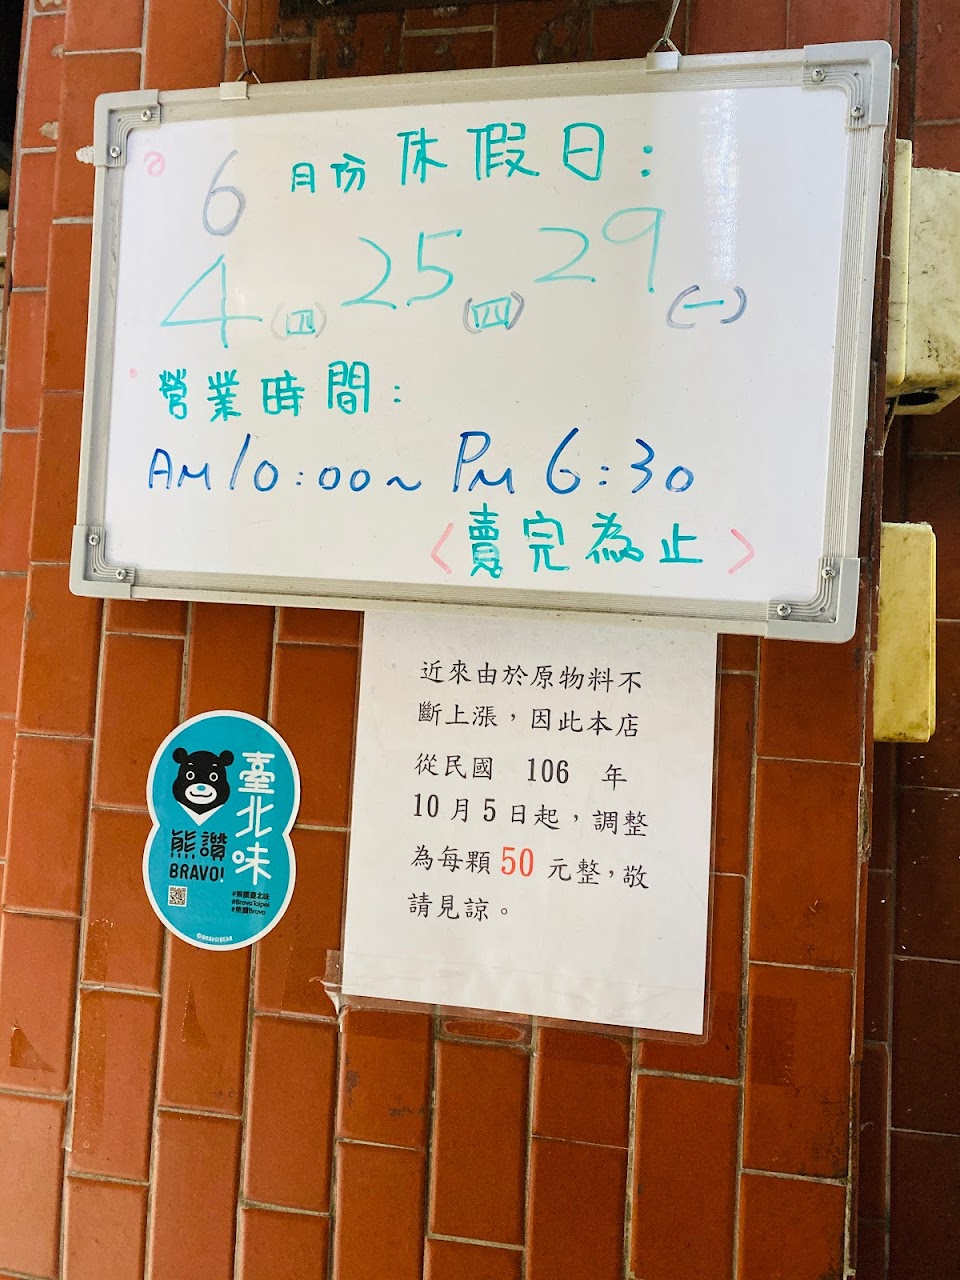 6月份休假日：
4(四) 25(四) 29(一)
營業時間：
AM10:00~PM6:30
<賣完為止>
近來由於原物料不
斷上漲，因此本店
從民國 106 年
10月5日起，調整
為每顆50元整，敬
請見諒。
臺北味
熊讚
BRAVO!
#熊讚臺北味
#BravoTaipei
#熊讚Bravo
©BRAVO BEAR